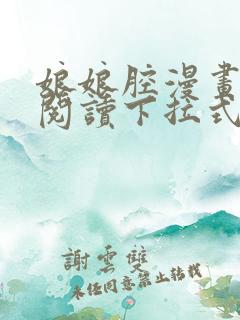 娘娘腔漫畫
閱讀下拉式
謝雲雙
未经同意禁止转载